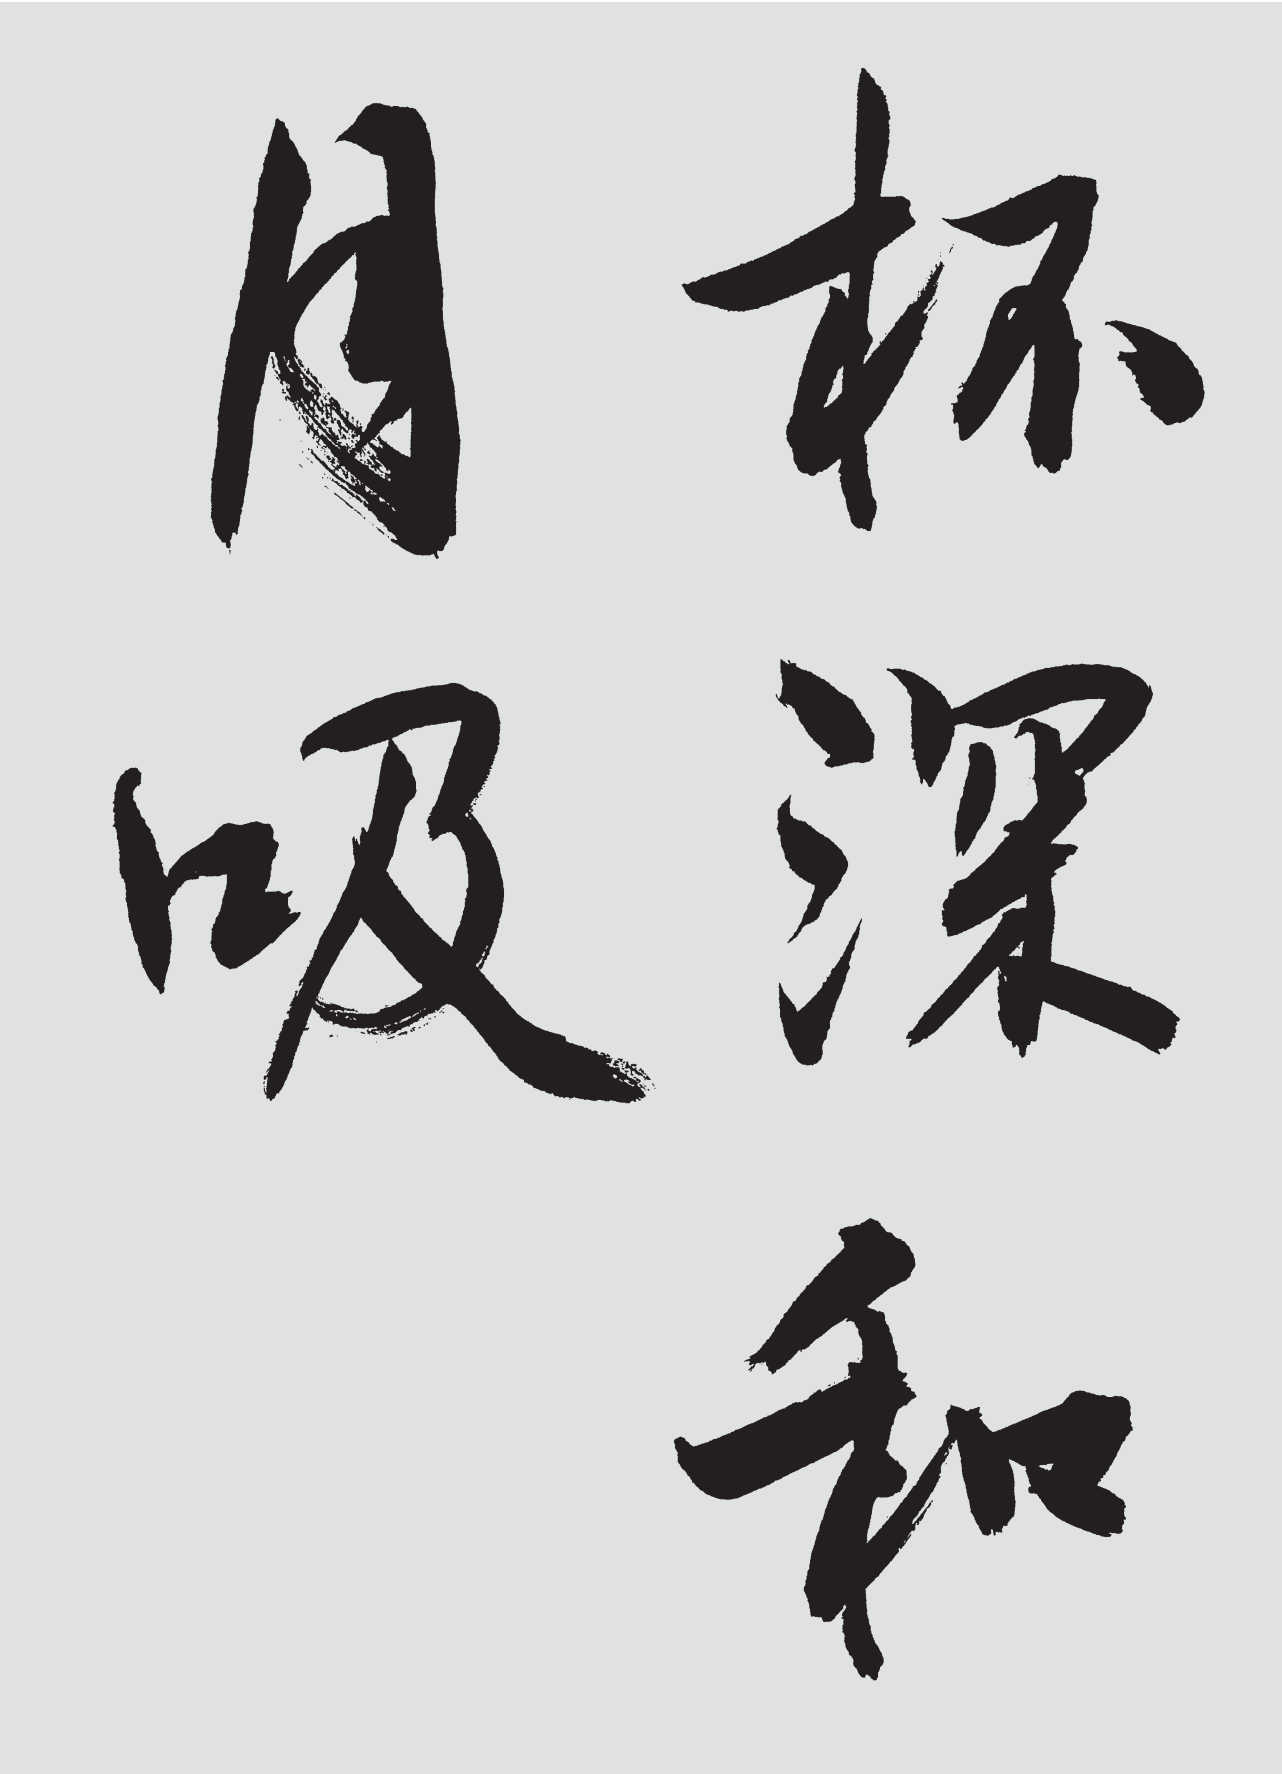 杯深和
月吸